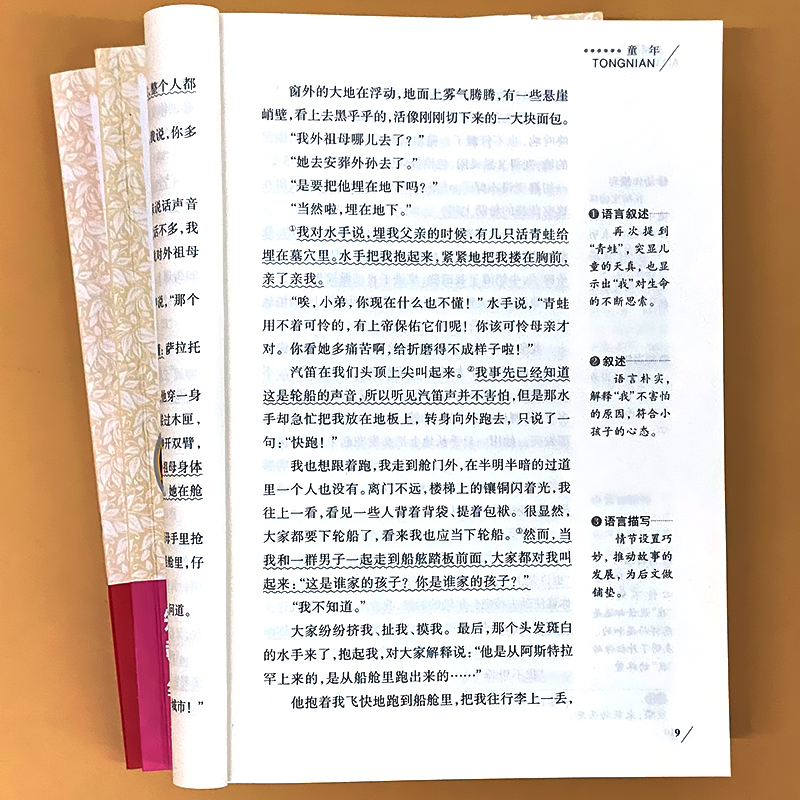 整个人都
说，你多
说话声音
话不多，我
对外祖母
说，“那个
萨拉托
她穿一身
过木匣，
开双臂，
祖母身体
她在舱
手里抢
舱里，仔
洞道。
城市！”
童年
TONGNIAN
窗外的大地在浮动，地面上雾气腾腾，有一些悬崖
峭壁，看上去黑乎乎的，活像刚刚切下来的一大块面包。
“我外祖母哪儿去了？”
“她去安葬外孙去了。”
“是要把他埋在地下吗？”
“当然啦，埋在地下。”
①我对水手说，埋我父亲的时候，有几只活青蛙给
埋在墓穴里。水手把我抱起来，紧紧地把我搂在胸前，
亲了亲我。
“唉，小弟，你现在什么也不懂！”水手说，“青蛙
用不着可怜的，有上帝保佑它们呢！你该可怜母亲才
对。你看她多痛苦啊，给折磨得不成样子啦！”
汽笛在我们头顶上尖叫起来。②我事先已经知道
这是轮船的声音，所以听见汽笛声并不害怕，但是那水
手却急忙把我放在地板上，转身向外跑去，只说了一
句：“快跑！”
我也想跟着跑，我走到舱门外，在半明半暗的过道
里一个人也没有。离门不远，楼梯上的镶铜闪着光，我
往上一看，看见一些人背着背袋、提着包袱。很显然，
大家都要下轮船了，看来我也应当下轮船。③然而，当
我和一群男子一起走到船舷踏板前面，大家都对我叫
起来：“这是谁家的孩子？你是谁家的孩子？”
“我不知道。”
大家纷纷挤我、扯我、摸我。最后，那个头发斑白
的水手来了，抱起我，对大家解释说：“他是从阿斯特拉
罕上来的，是从船舱里跑出来的……”
他抱着我飞快地跑到船舱里，把我往行李上一丢，
❶语言叙述
再次提到
“青蛙”，突显儿
童的天真，也显
示出“我”对生命
的不断思索。
❷叙述
语言朴实，
解释“我”不害怕
的原因，符合小
孩子的心态。
❸语言描写
情节设置巧
妙，推动故事的
发展，为后文做
铺垫。
9